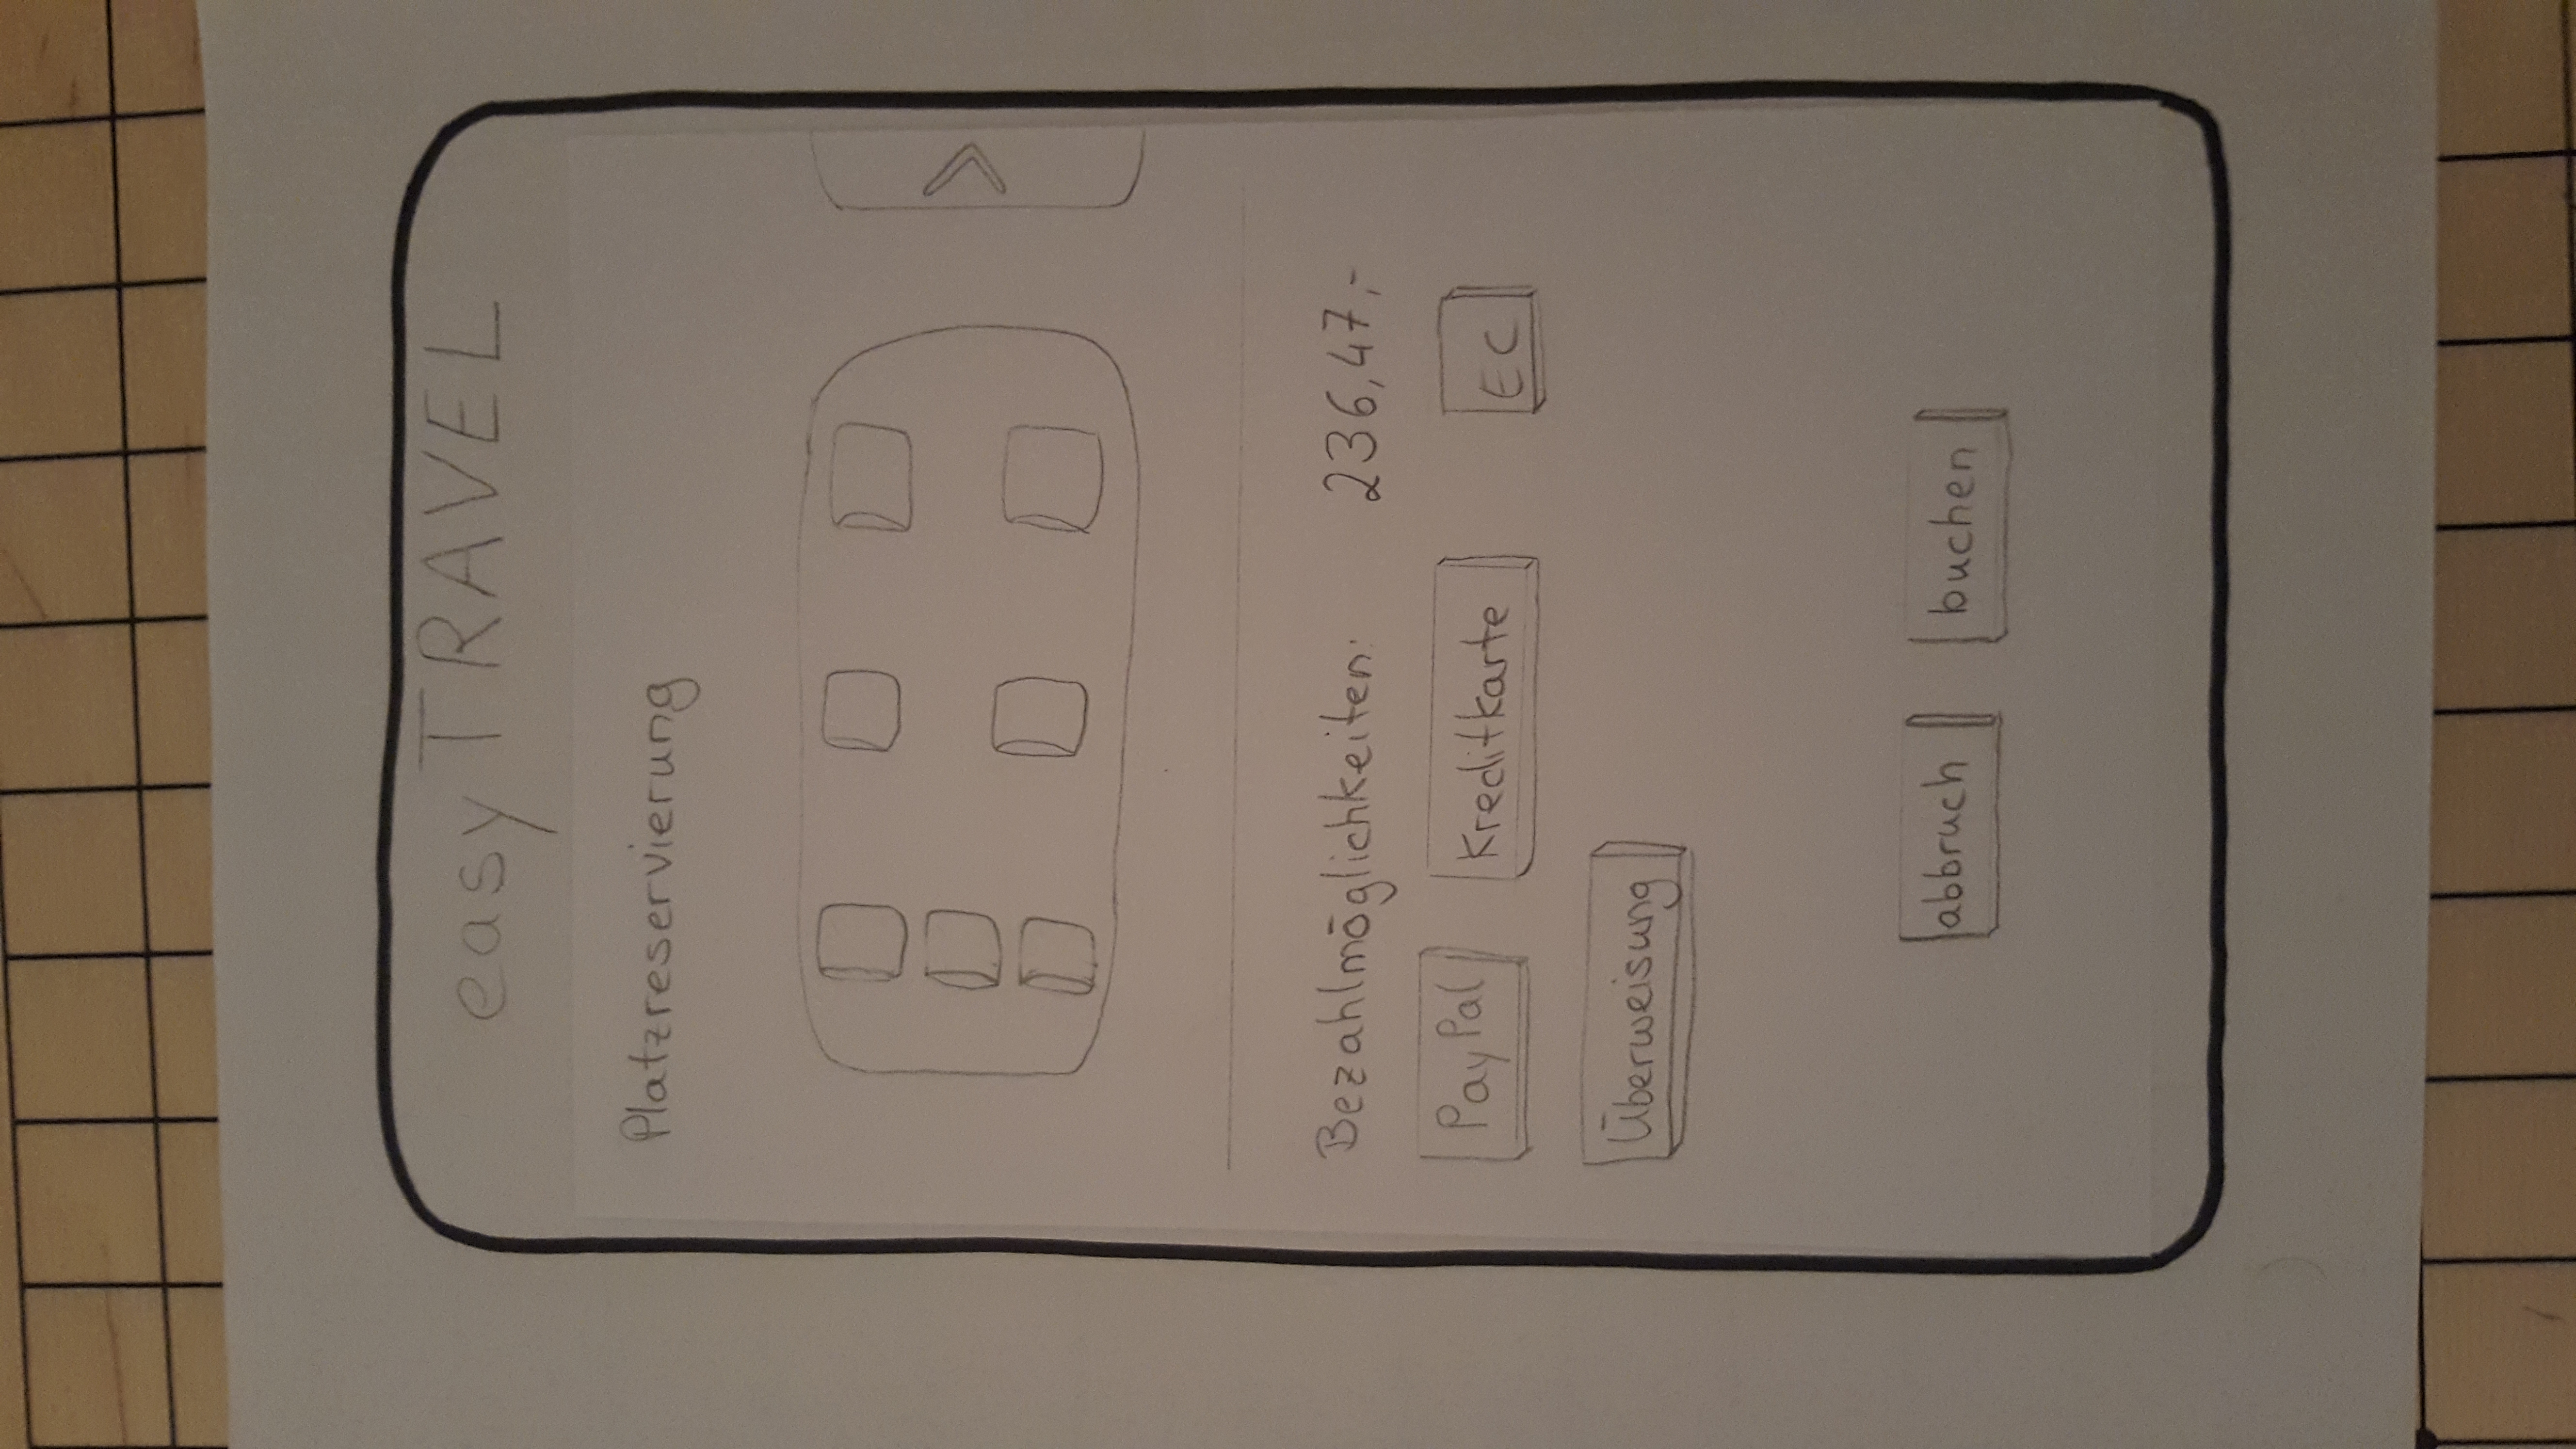 easyTRAVEL
Platzreservierung
>
Bezahlmöglichkeiten: 236,47,-
PayPal Kreditkarte EC
Überweisung
abbruch buchen